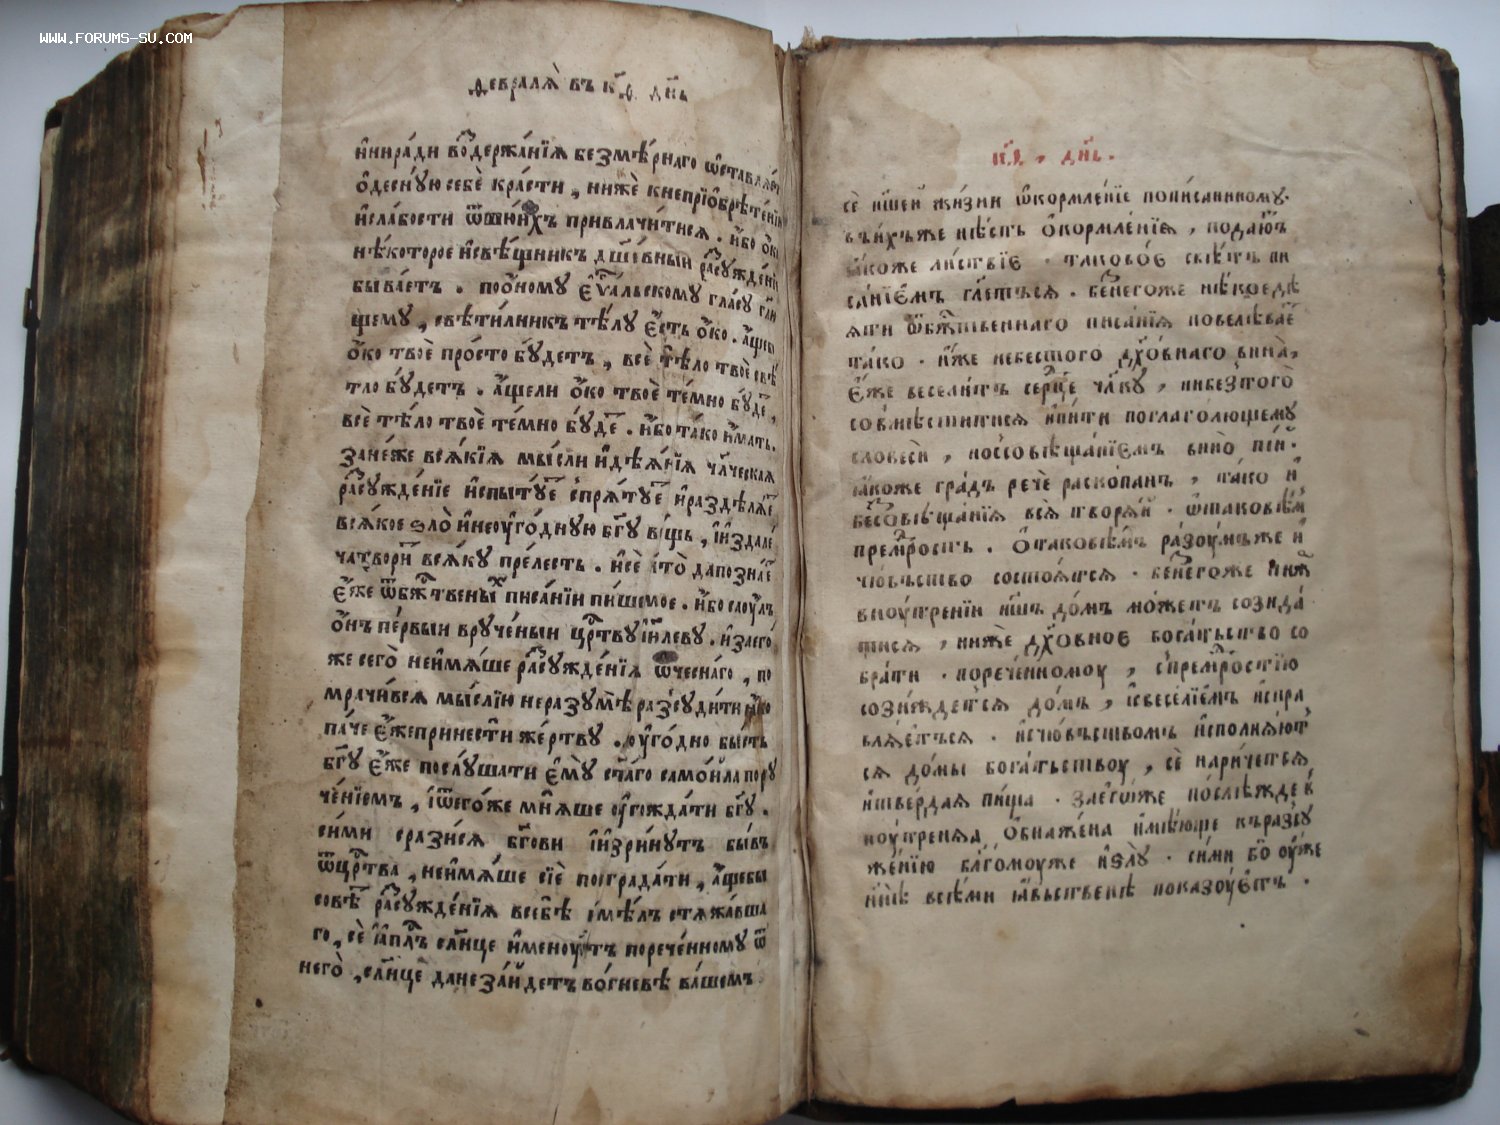 WWW.FORUMS-SU.COM
февралѧ̀ въ к҃ѳ. дн҃ь
и҆ниради воз̾держа́нїѧ безмѣ́рнаго ѡ҆ставлѧ́ет
ѻ҆десну́ю себѐ кра́сти, нижѐ кнепрїѡбрѣте́нїю
и҆сла́бости ѿ ни́хъ привлачи́тисѧ. и҆́бо ѻ҆́ко
нѣ́которое и҆свѣ́щникъ дш҃е́вныи расꙋжде́нїе
быва́етъ. подо́бному є҆ѵⷢ҇льскому гла́су гл҃ю
щему, свѣти́лникъ тѣ́лу є҆́сть ѻ҆́ко. а҆́ще
ѻ҆́ко твоѐ про́сто бу́детъ, всѐ тѣ́ло твоѐ свѣ́
тло бу́детъ. а҆́щели ѻ҆́ко твоѐ те́мно бу́деⷮ,
всѐ тѣ́ло твоѐ те́мно бу́деⷮ. и҆́бо та́ко и҆́мать.
зане́же всѧ́кїѧ мы́сли и҆дѣѧ́нїѧ чл҃ческаѧ
расꙋжде́нїе и҆спыту́еⷮ спрѧ́туеⷮ и҆раздѣлѧ́еⷮ
всѧ́кое ѕло̀ и҆неоуго́дную бг҃у ве́щь, и҆и҆здале́
чатвори́т всѧ́ку пре́лесть. и҆сѐ кто̀ дапозна́еⷮ
є҆́же ѿ бж҃твеныⷯ писа́нїи пи́шемое. и҆́бо саоу́лъ
ѻ҆́нъ пе́рвыи вруче́ныи црⷭ҇тву і҆и҃леву. и҆заего́
же сего̀ неи҆мѧ́ше расꙋжде́нїѧ ѻ҆чесна́го, по
мрачи́всѧ мы́слїи неразумѣ̀ разсуди́ти ꙗ҆́ко
па́че є҆́жепринести же́ртву. оуго́дно бы́сть
бг҃у є҆́же послу́шати є҆мꙋ̀ ст҃а́го самои́ла пору
че́нїемъ, и҆ѿ сего́же мнѧ́ше оугожда́ти бг҃у.
си́ми сразисѧ бг҃ови и҆и҆зри́нутъ бы́въ
ѿ црⷭ҇тва, неи҆мѧ́ше сїѐ пострада́ти, а҆́щебы
совѣ́т расꙋжде́нїѧ всебѣ̀ и҆мѣ́лъ стѧжа́вша
го, сѐ а҆пⷭ҇лъ сл҃нце и҆меноу́етъ порече́нному ѿ
него̀, сл҃нцѐ дане за́йдетъ во́гневѣ ва́шемъ
к҃ѳ. дн҃ь.
сѐ на́шей жи́зни ѡ҆кормле́нїе попи́санному.
въни́хъже нѣ́сть ѻ҆кормле́нїѧ, пода́ютъ
ꙗ҆́коже ли́ствїе. таково́е свѣ́тъ пи
са́нїемъ гл҃етъсѧ. безнегоже нѣкредѣ
ѧти ѿ бж҃твеннаго писа́нїѧ повелѣва́еⷮ
та́ко. и҆́же небесного дх҃о́внаго вина̀,
є҆́же весели́тъ се́рⷣце чл҃ку, нибезтого̀
совмѣститисѧ и҆пи́ти поглаго́лющему
словеси, носсовѣща́нїемъ вино̀ пїи́.
ꙗ҆́коже гра́дъ речѐ раско́панъ, та́ко и҆
бессовѣща́нїѧ всѧ̀ творѧ́й. ѡ҆таковѣ́мъ
премⷣрость. ѻ҆таковѣ́мъ ра́зоумъже и҆
чю́въство состоѧ́тсѧ. безнегоже ниже
вноу́тренїи на́шъ до́мъ мо́жетъ созида́
тисѧ, нижѐ дх҃о́вное бога́тьство со
бра́ти. порече́нномоу, спремⷣростїю
сози́ждетсѧ до́мъ, и҆свесе́лїемъ и҆спра
влѧ́етъсѧ. и҆счю́въствомъ и҆сполнѧ́ютъ
сѧ до́мы бога́тьствоу, сѐ нари́чется
и҆тве́рдаѧ пи́ща. заего́же послѣ́жде в
ноу́тренѧѧ ѻ҆бнаже́на и҆мѣ́юще къразсу
же́нїю бл҃го́муже и҆ѕлу̀. си́ми бо оу́же
на́мъ все́ми ꙗ҆́вьственѣ показоу́етъ.